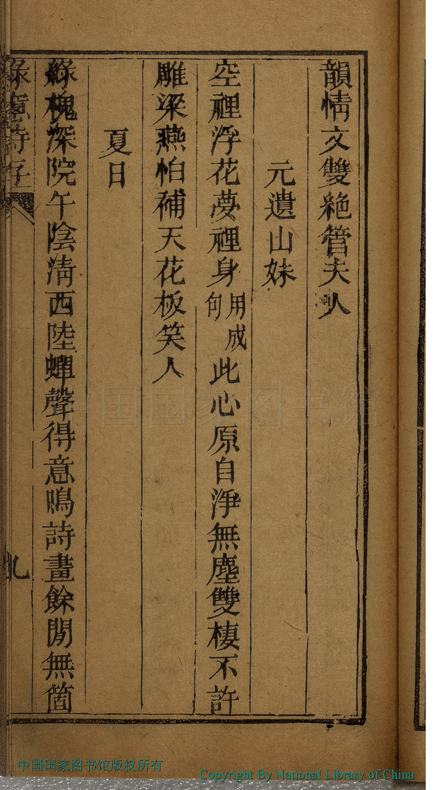 韻情文雙絕管夫人
元遺山妹
空裡浮花夢裡身用成句此心原自淨無塵雙棲不許
雕梁燕怕補天花板笑人
夏日
綠槐深院午陰淸西陸蟬聲得意鳴詩畫餘閒無箇
九
中国国家图书馆版权所有
Copyright By National Library of China